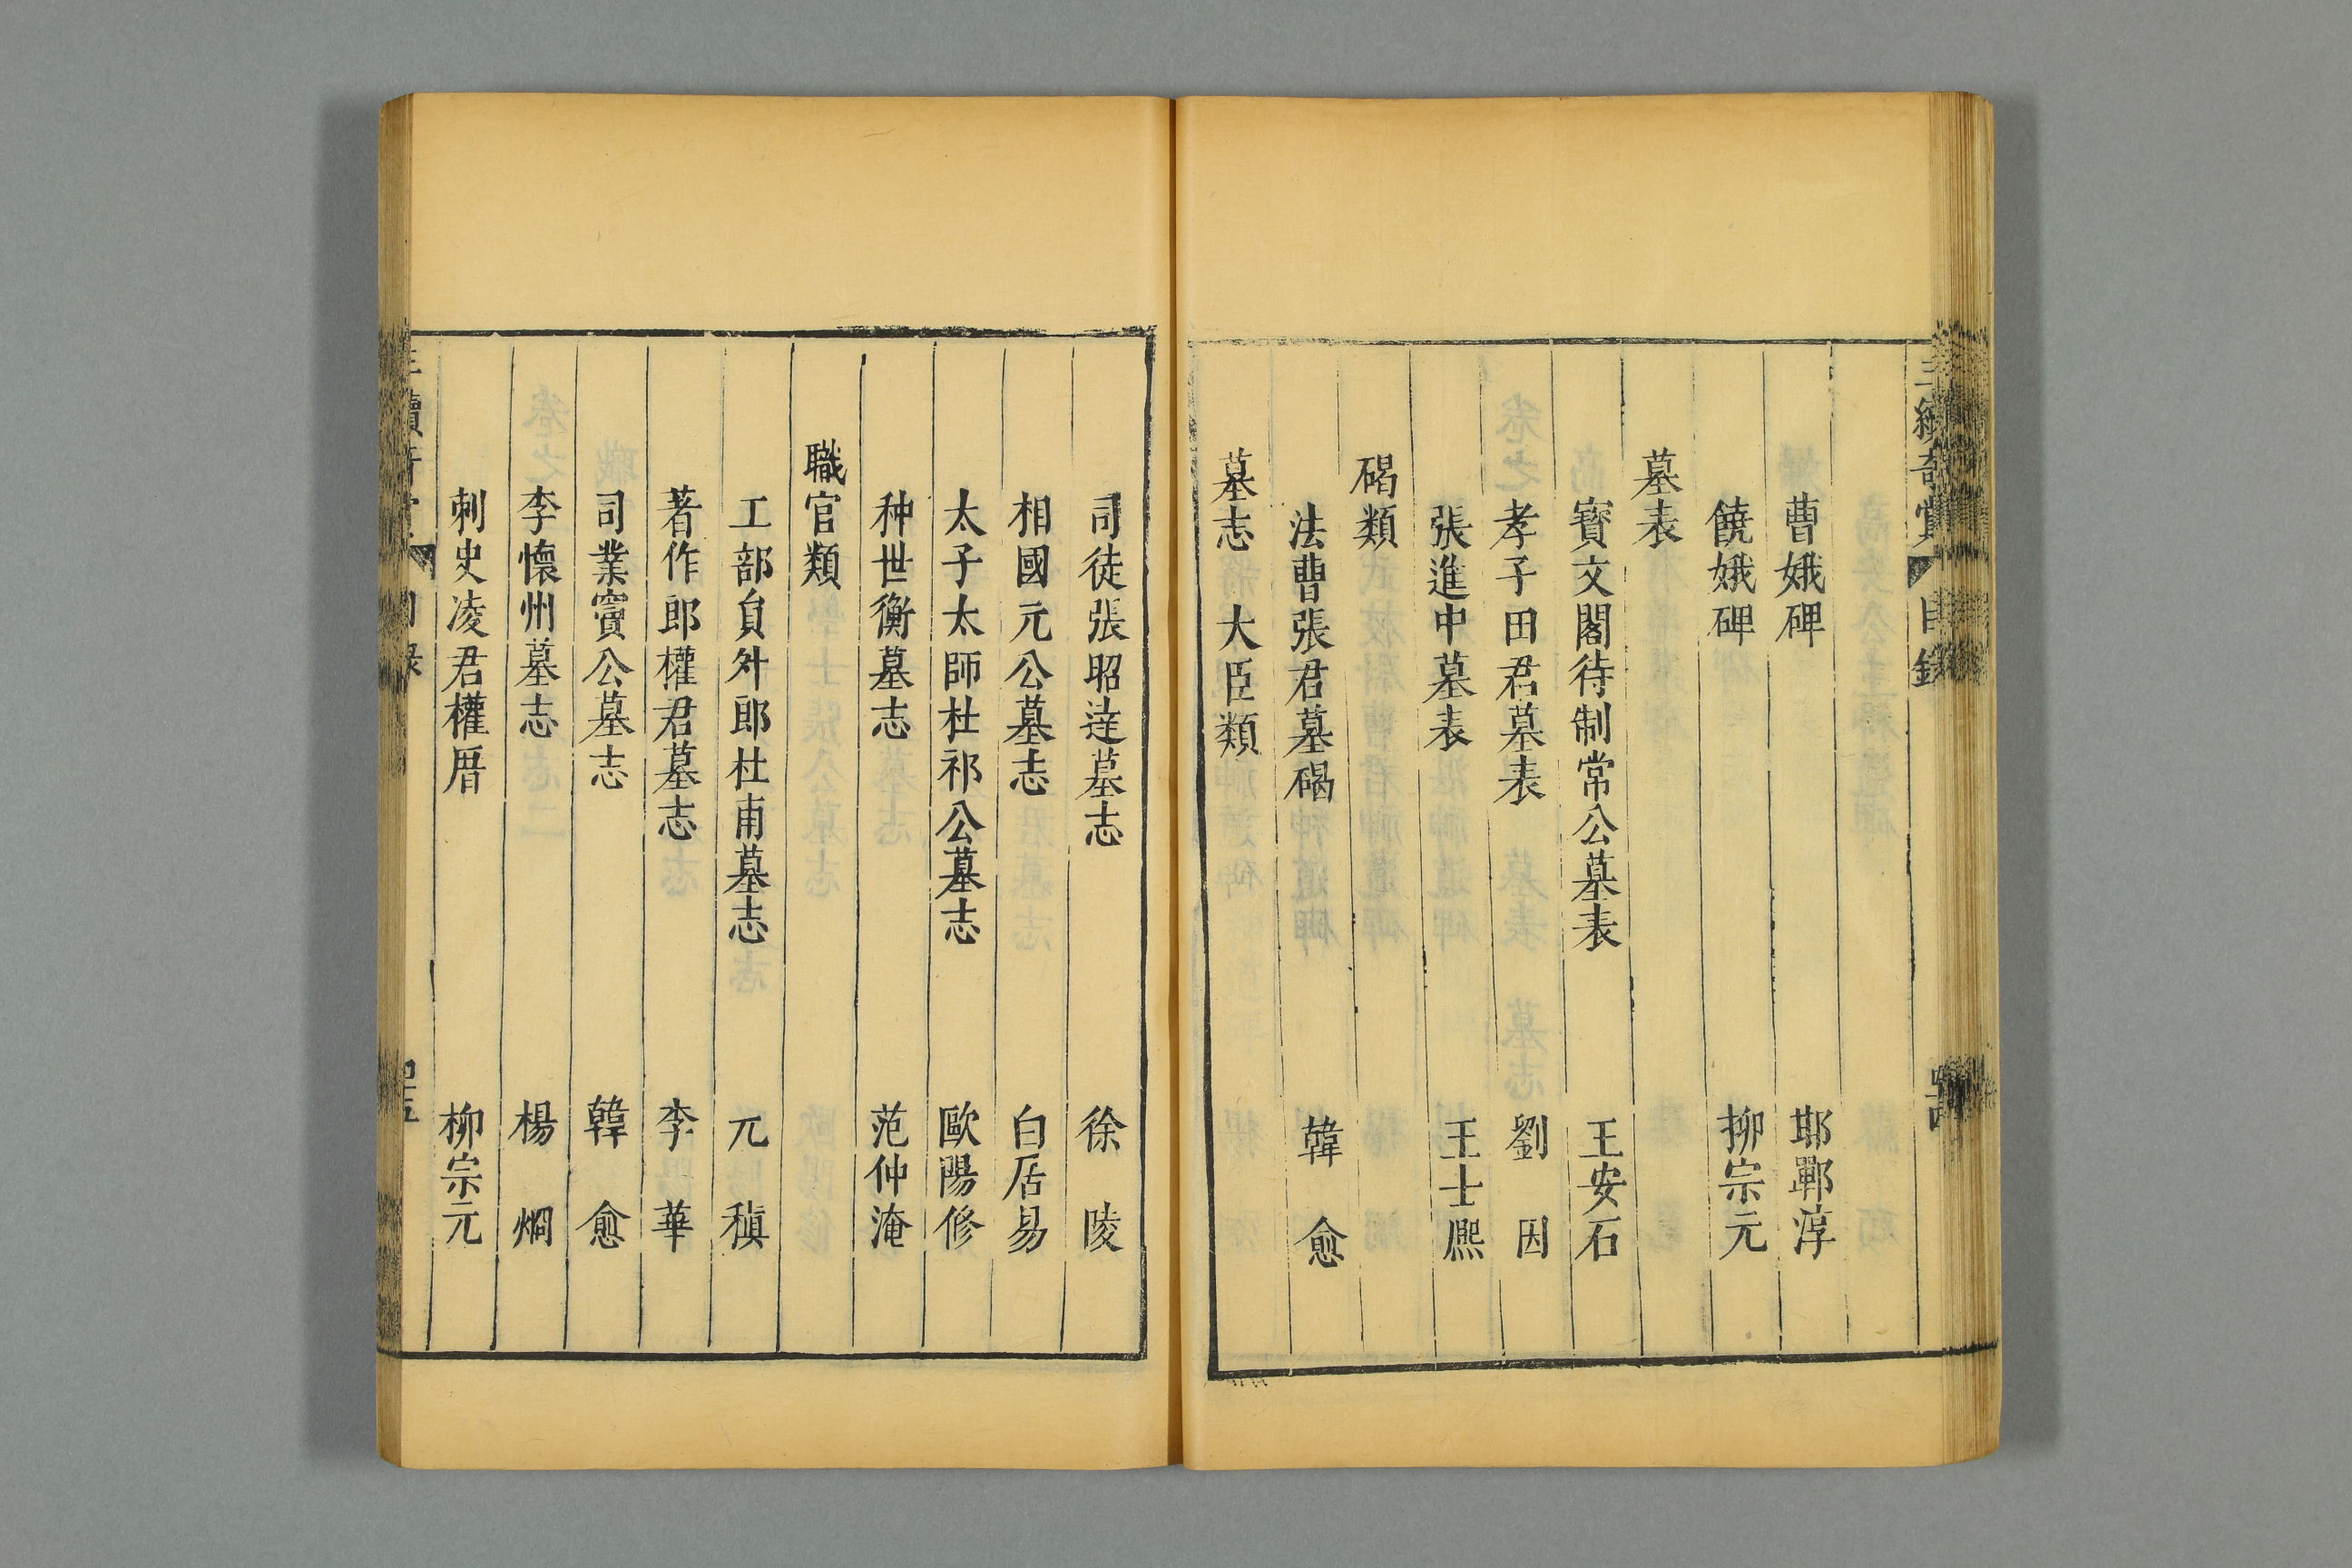 三續奇賞 目錄
曹娥碑 邯鄲淳
饒娥碑 柳宗元
墓表
寳文閣待制常公墓表 王安石
孝子田君墓表 劉因
張進中墓表 王士熈
碣類
法曹張君墓碣 韓愈
墓志 大臣類
司徒張昭達墓志 徐陵
相國元公墓志 白居易
太子太師杜祁公墓志 歐陽修
种世衡墓志 范仲淹
職官類
工部員外郎杜甫墓志 元稹
著作郎權君墓志 李華
司業竇公墓志 韓愈
李懷州墓志 楊烱
刺史凌君權厝 柳宗元